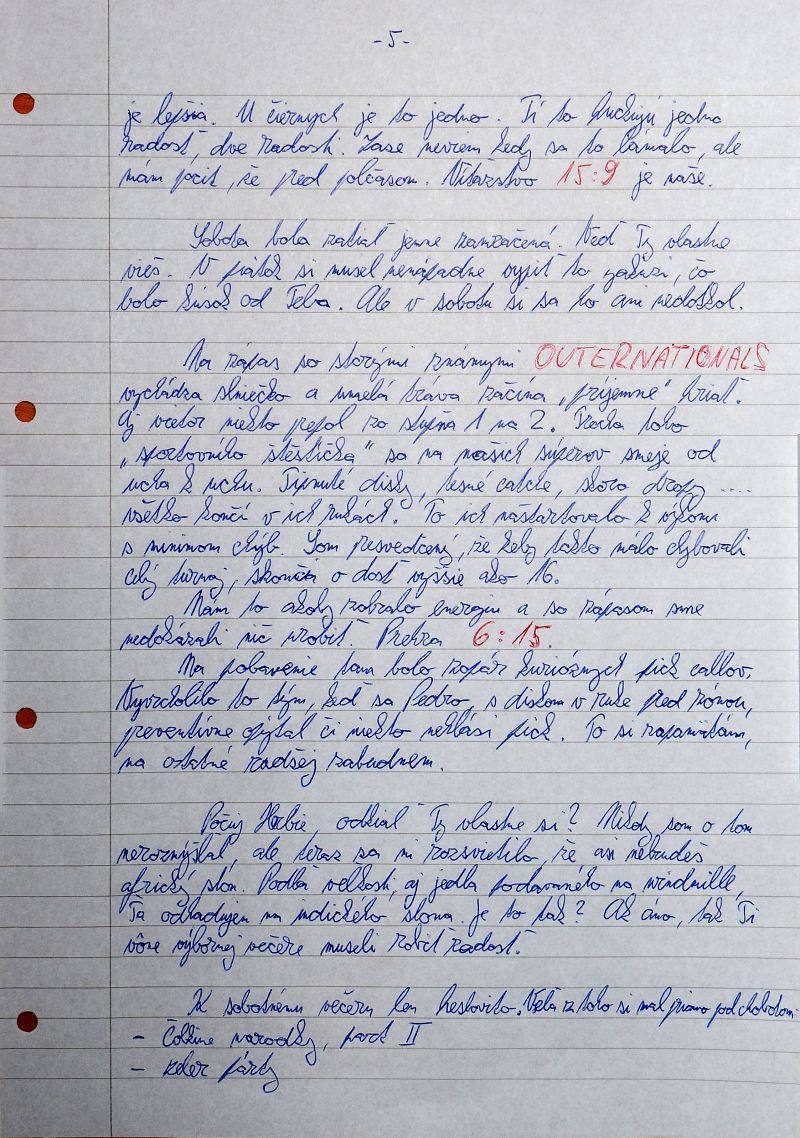 -5-
je lepšia. U čiernych je to jedno. Tí to krúžijú jedna
radosť, dve radosti. Zase neviem kedy sa to lámalo, ale
mám pocit, že pred polčasom. Víťazstvo 15:9 je naše.
Sobota bola zatiaľ jemne zamračená. Veď Ty vlastne
vieš. V piatok si musel nenápadne vypiť to, čo
bolo kúsok od Teba. Ale v sobotu si sa to ani nedotkol.
Na zápas so starými známymi OUTERNATIONALS
vychádza slniečko a umelá tráva začína „príjemne" hriať.
Aj vietor niekto prepol zo stupňa 1 na 2. Trocha toho
„sportovního štěstíčka" sa na našich súperov smeje od
ucha k uchu. Tipnuté disky, tesné catche, skoro dropy ....
všetko končí v ich rukách. To ich naštartovalo k výkonu
s minimom chýb. Som presvedčený, že keby takto málo chybovali
celý turnaj, skončia o dosť vyššie ako 16.
Nám to akoby zobralo energiu a so zápasom sme
nedokázali nič urobiť. Prehra 6:15.
Na pobavenie tam bolo zopár kurióznych pick callov.
Vyvrcholilo to tým, keď sa Pedro, s diskom v ruke pred zónou,
preventívne opýtal či niekto nehlási pick. To si zapamätám,
na ostatné radšej zabudnem.
Počuj Herbie, odkiaľ Ty vlastne si? Nikdy som o tom
nerozmýšľal, ale teraz sa mi rozsvietilo, že asi nebudeš
africký slon. Podľa veľkosti, aj jedla podávaného na windmille,
Ťa odhadujem na indického slona. Je to tak? Ak áno, tak Ti
vône výbornej večere museli robiť radosť.
K sobotnému večeru len heslovito. Veľa z toho si mal priamo pod chobotom
- Čolkine narodky, part II
- keler párty